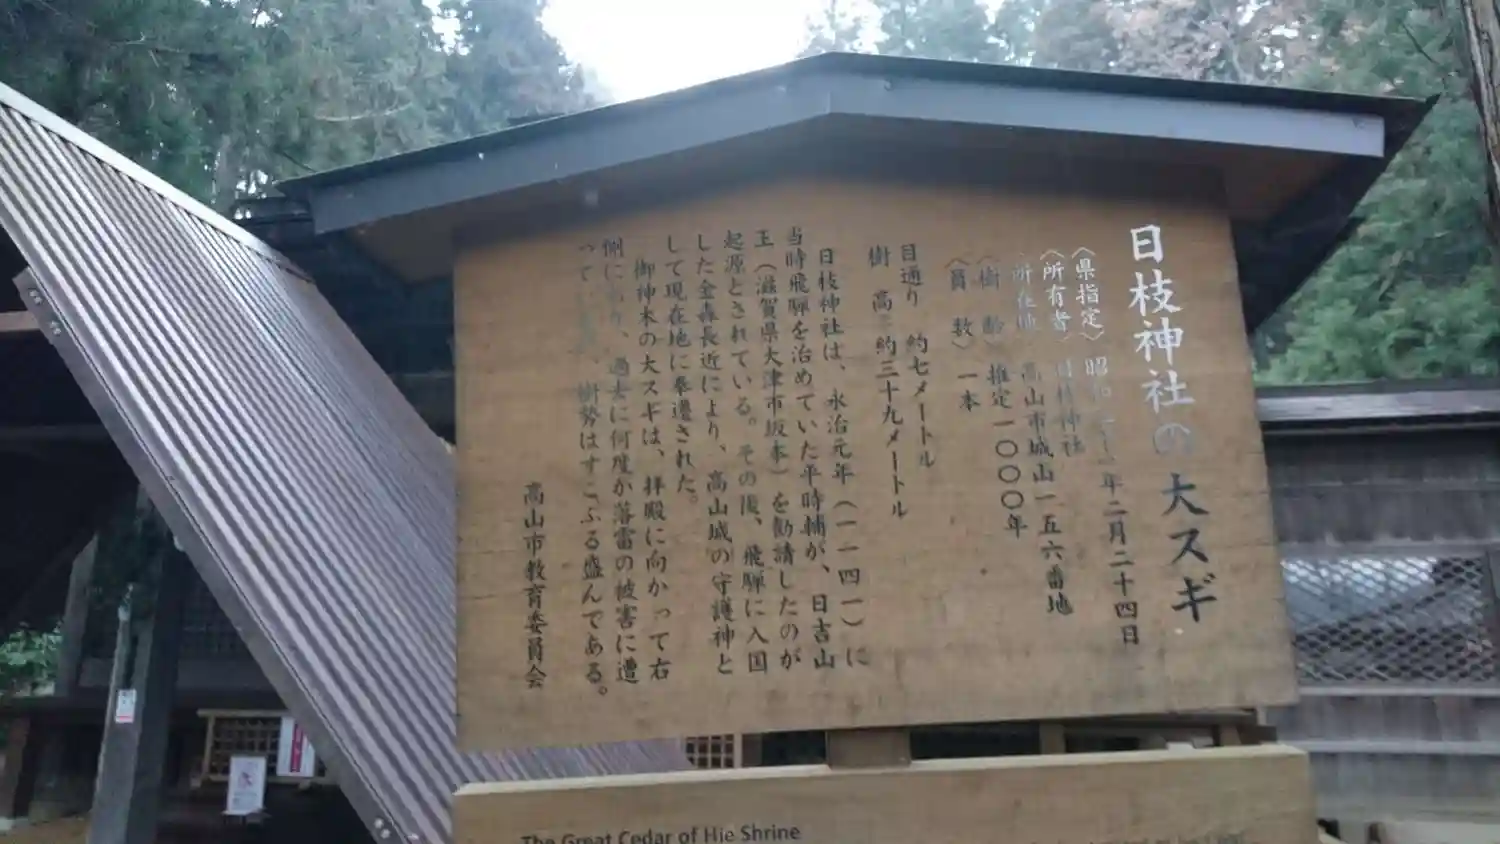 日枝神社の大スギ
〈県指定〉 昭和 年二月二十四日
〈所有者〉 日枝神社
〈所在地〉 高山市城山一五六番地
〈樹 齢〉 推定一〇〇〇年
〈員 数〉 一本
目通り 約七メートル
樹 高 約三十九メートル
日枝神社は、永治元年(一一四一)に
当時飛騨を治めていた平時輔が、日吉山
王(滋賀県大津市坂本)を勧請したのが
起源とされている。その後、飛騨に入国
した金森長近により、高山城の守護神と
して現在地に奉遷された。
御神木の大スギは、拝殿に向かって右
側にあり、過去に何度か落雷の被害に遭
って 、樹勢はすこぶる盛んである。
高山市教育委員会
The Great Cedar of Hie Shrine